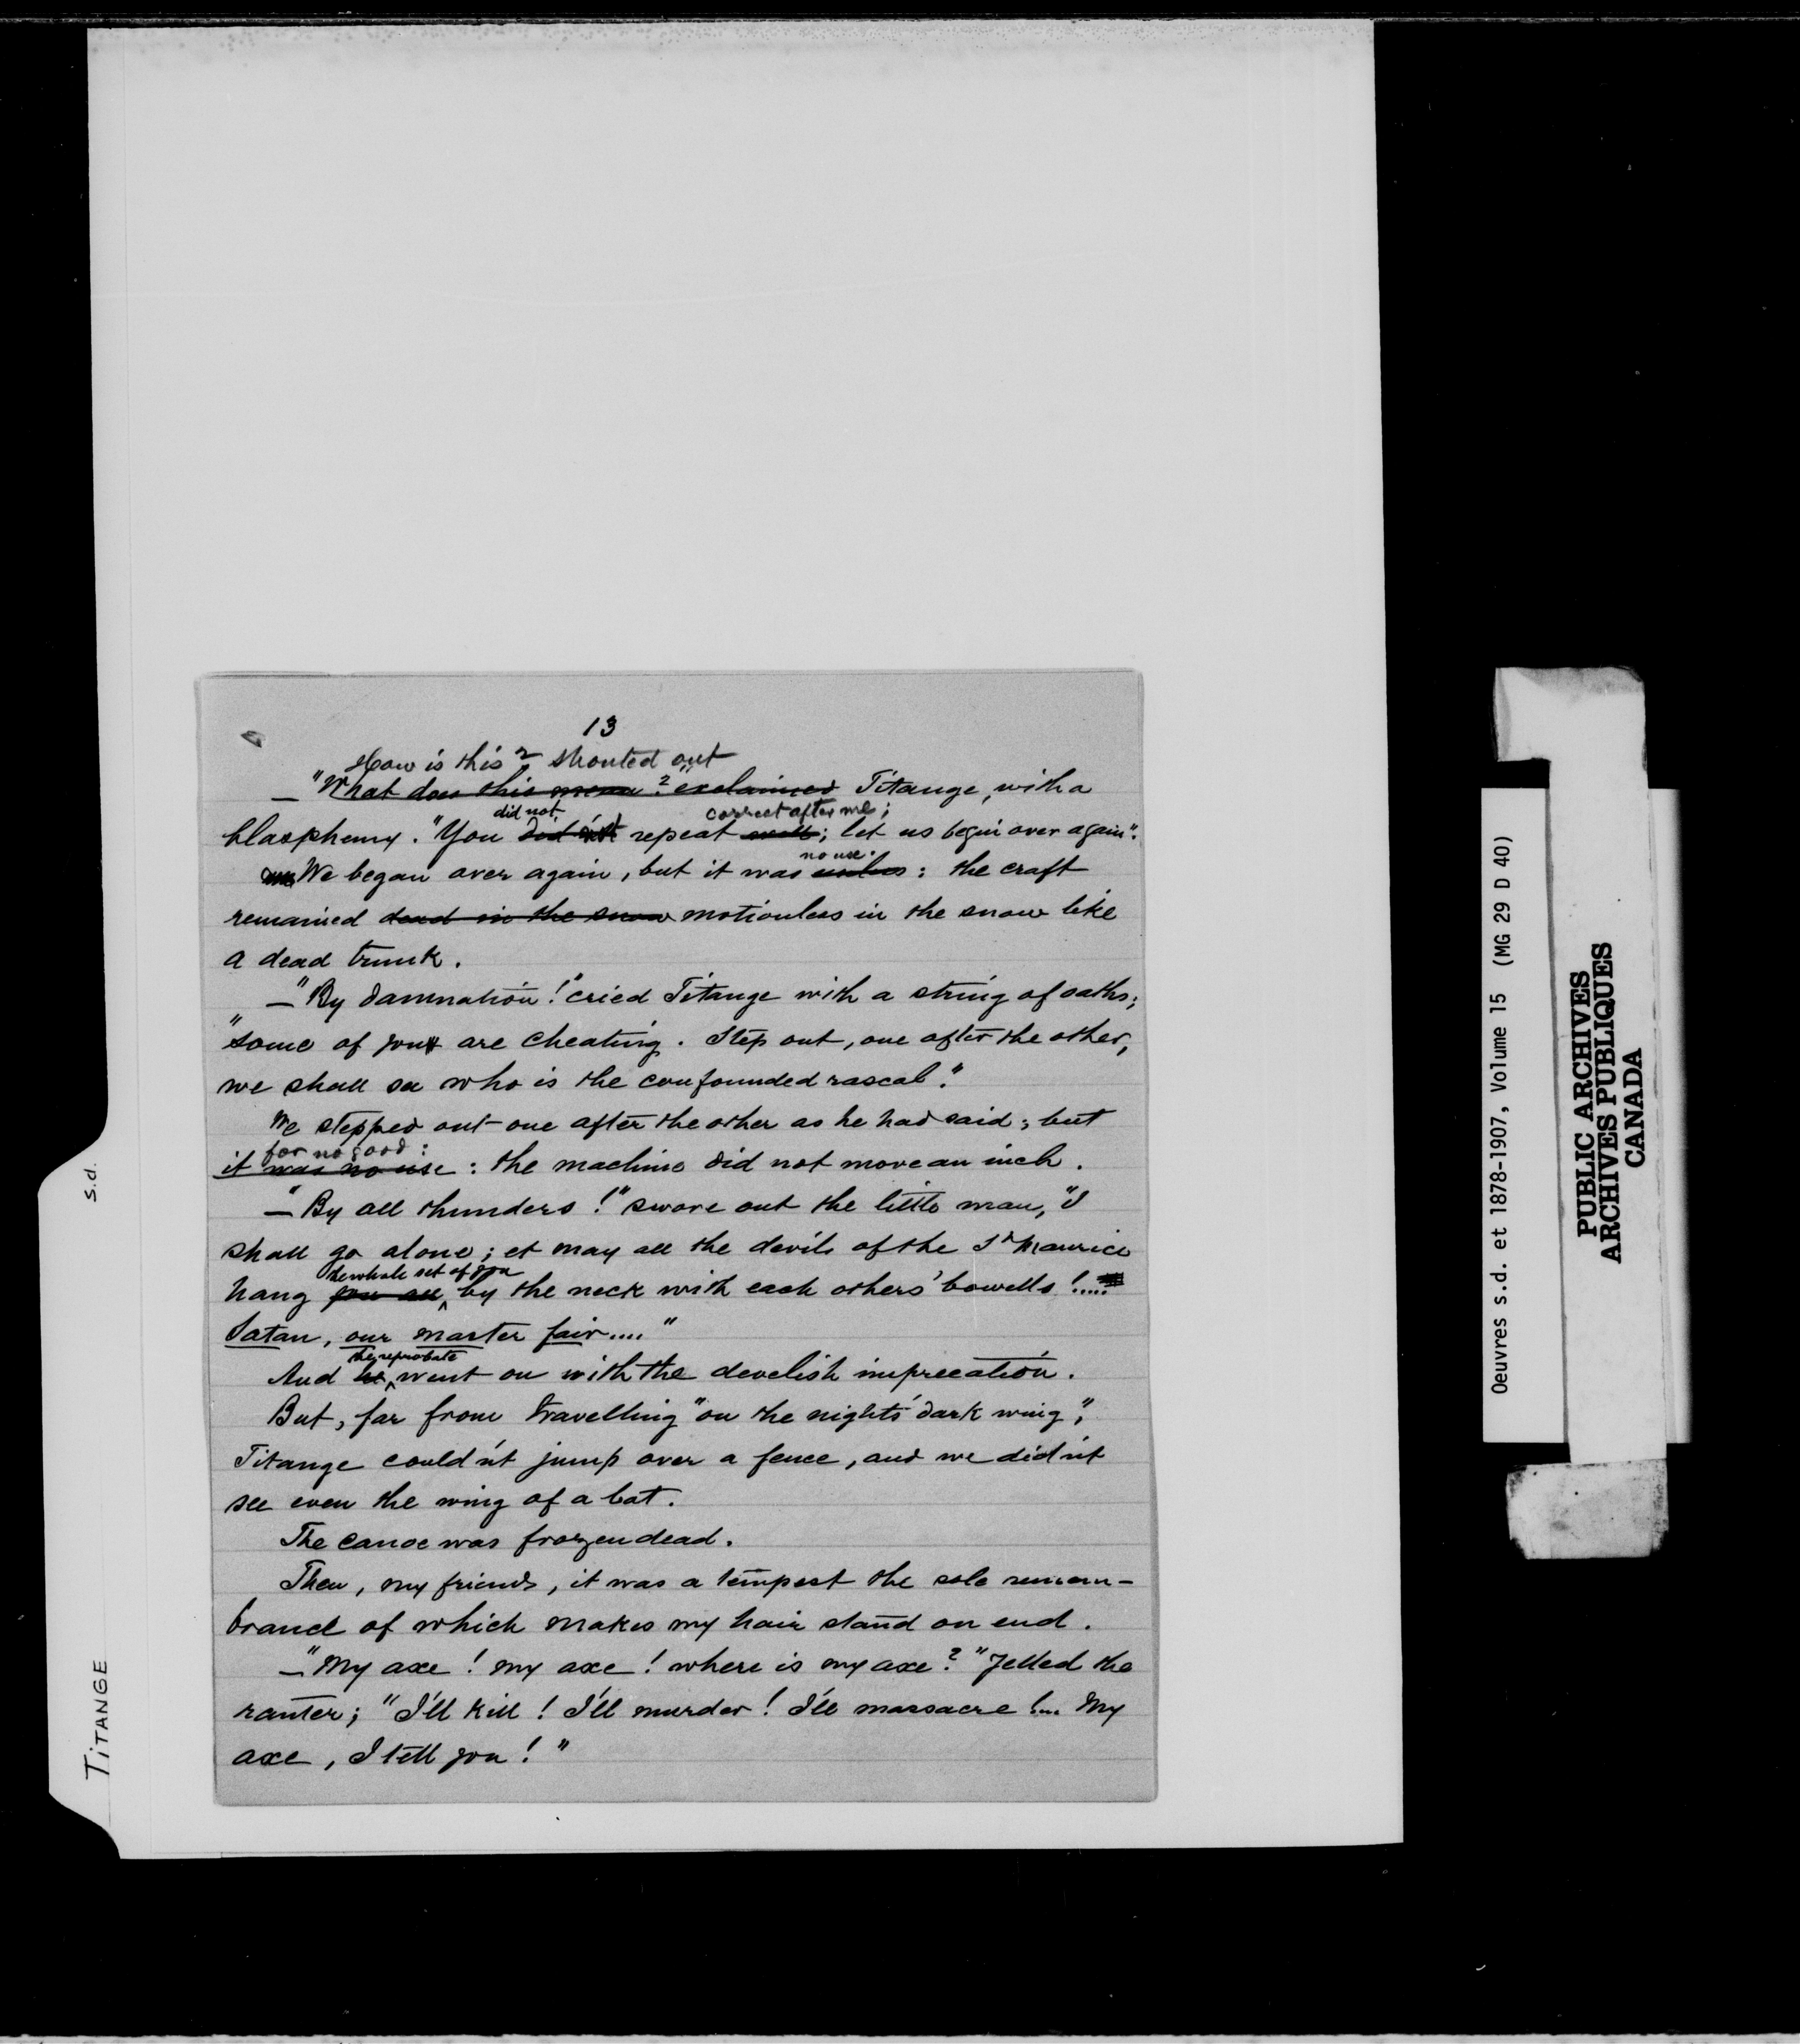 13
How is this? shouted out
— "What does this mean?" exclaimed Titange, with a
did not correct after me;
blasphemy. "You did n't repeat well; let us begin over again".
no use.
We began over again, but it was useless: the craft
remained dead in the snow motionless in the snow like
a dead trunk.
— "By damnation!" cried Titange with a string of oaths;
"some of you are cheating. Step out, one after the other,
we shall see who is the confounded rascal."
We stepped out one after the other as he had said; but
for no good:
it was no use: the machine did not move an inch.
— "By all thunders!" swore out the little man, "I
shall go alone; et may all the devils of the St Maurice
the whole set of you
hang you all by the neck with each others' bowells!.....
Satan, our master fair...."
the reprobate
And he went on with the develish imprecation.
But, far from travelling "on the nights' dark wing",
Titange could n't jump over a fence, and we did n't
see even the wing of a bat.
The canoe was frozen dead.
Then, my friends, it was a tempest the sole remem-
brance of which makes my hair stand on end.
— "My axe! my axe! where is my axe?" Yelled the
ranter; "I'll kill! I'll murder! I'll massacre!... My
axe, I tell you!"
TITANGE
s.d.
Oeuvres s.d. et 1878-1907, Volume 15 (MG 29 D 40)
PUBLIC ARCHIVES
ARCHIVES PUBLIQUES
CANADA